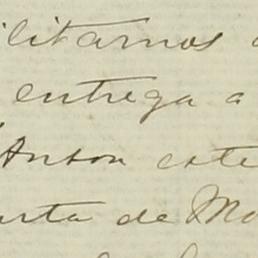 ilitarnos a
entrega a
Anson este
rta de Mo